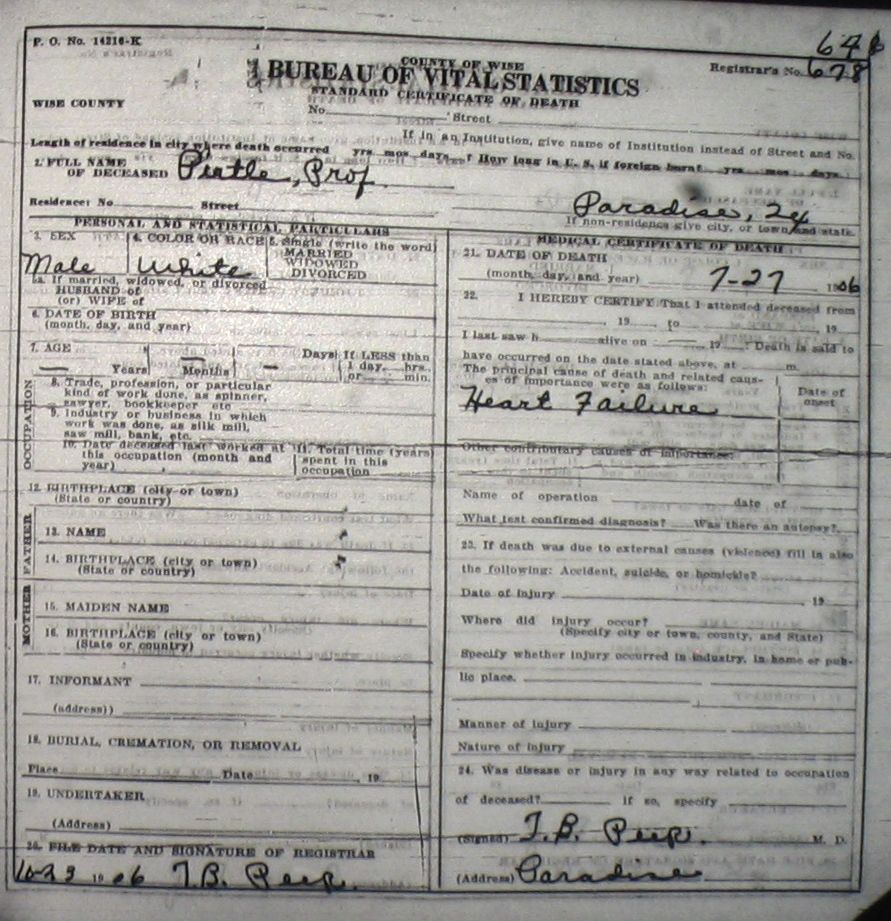 P. O. No. 14216-K
COUNTY OF WISE
BUREAU OF VITAL STATISTICS
Registrar's No. 678
STANDARD CERTIFICATE OF DEATH
WISE COUNTY
No. Street
If in an Institution, give name of Institution instead of Street and No.
Length of residence in city where death occurred yrs mos days How long in U. S. if foreign born? yrs mos days
2. FULL NAME
OF DECEASED Pirtle, Prof.
Residence: No. Street Paradise,
If non-residence give city, or town, and state.
PERSONAL AND STATISTICAL PARTICULARS
3. SEX 4. COLOR OR RACE 5. Single (write the word)
MARRIED
WIDOWED
DIVORCED
Male White
5a. If married, widowed, or divorced
HUSBAND of
(or) WIFE of
6. DATE OF BIRTH
(month, day, and year)
7. AGE
Years Months Days If LESS than
1 day, hrs.
or min.
OCCUPATION
8. Trade, profession, or particular
kind of work done, as spinner,
sawyer, bookkeeper etc
9. Industry or business in which
work was done, as silk mill,
saw mill, bank, etc.
10. Date deceased last worked at
this occupation (month and
year)
11. Total time (years)
spent in this
occupation
12. BIRTHPLACE (city or town)
(State or country)
FATHER
13. NAME
14. BIRTHPLACE (city or town)
(State or country)
MOTHER
15. MAIDEN NAME
16. BIRTHPLACE (city or town)
(State or country)
17. INFORMANT
(address))
18. BURIAL, CREMATION, OR REMOVAL
Place Date , 19
19. UNDERTAKER
(Address)
20. FILE DATE AND SIGNATURE OF REGISTRAR
10-23 1906 T.B. Peep.
MEDICAL CERTIFICATE OF DEATH
21. DATE OF DEATH
(month, day, and year) 7-27 1906
22. I HEREBY CERTIFY That I attended deceased from
, 19 , to , 19
I last saw h alive on , 19 ; Death is said to
have occurred on the date stated above, at m.
The principal cause of death and related caus-
es of importance were as follows:
Date of
onset
Heart Failure
Other contributory causes of importance:
Name of operation date of
What test confirmed diagnosis? Was there an autopsy?
23. If death was due to external causes (violence) fill in also
the following: Accident, suicide, or homicide?
Date of injury , 19
Where did injury occur?
(Specify city or town, county, and State)
Specify whether injury occurred in industry, in home or pub-
lic place.
Manner of injury
Nature of injury
24. Was disease or injury in any way related to occupation
of deceased? if so, specify
(Signed) T.B. Peep. M. D.
(Address) Paradise